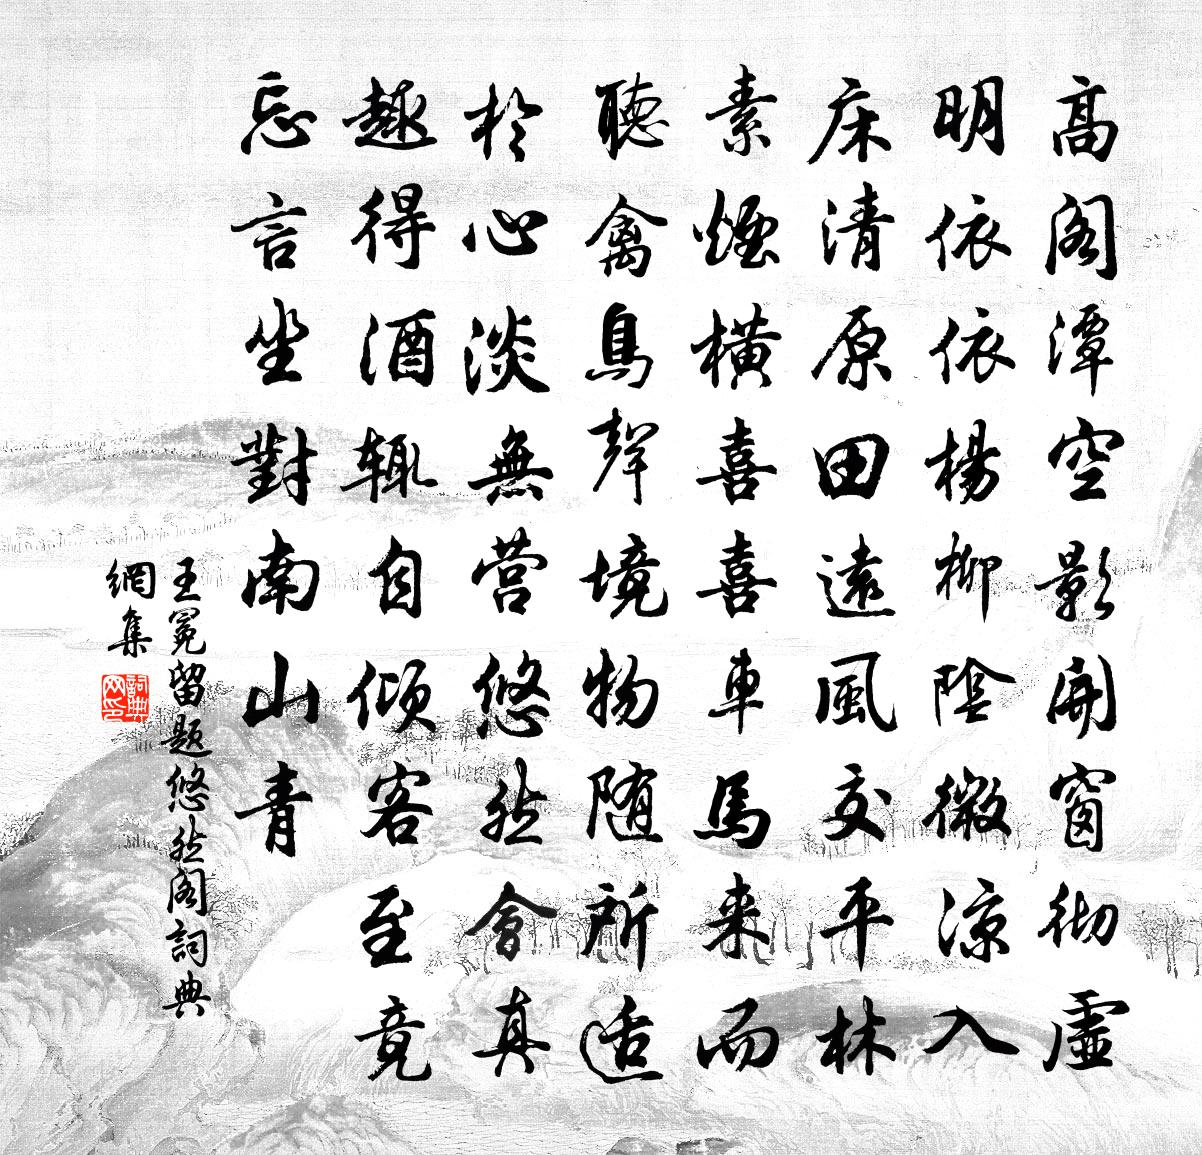 高閣潭空影開窗彻虛
明依依楊柳陰微涼入
床清原田遠風交平林
素煙橫喜喜車馬来而
聽禽鳥聲境物随所适
於心淡無营悠然會真
趣得酒辄自傾客至竟
忘言坐對南山青
王冕留題悠然閣詞典
網集
詞典
网印